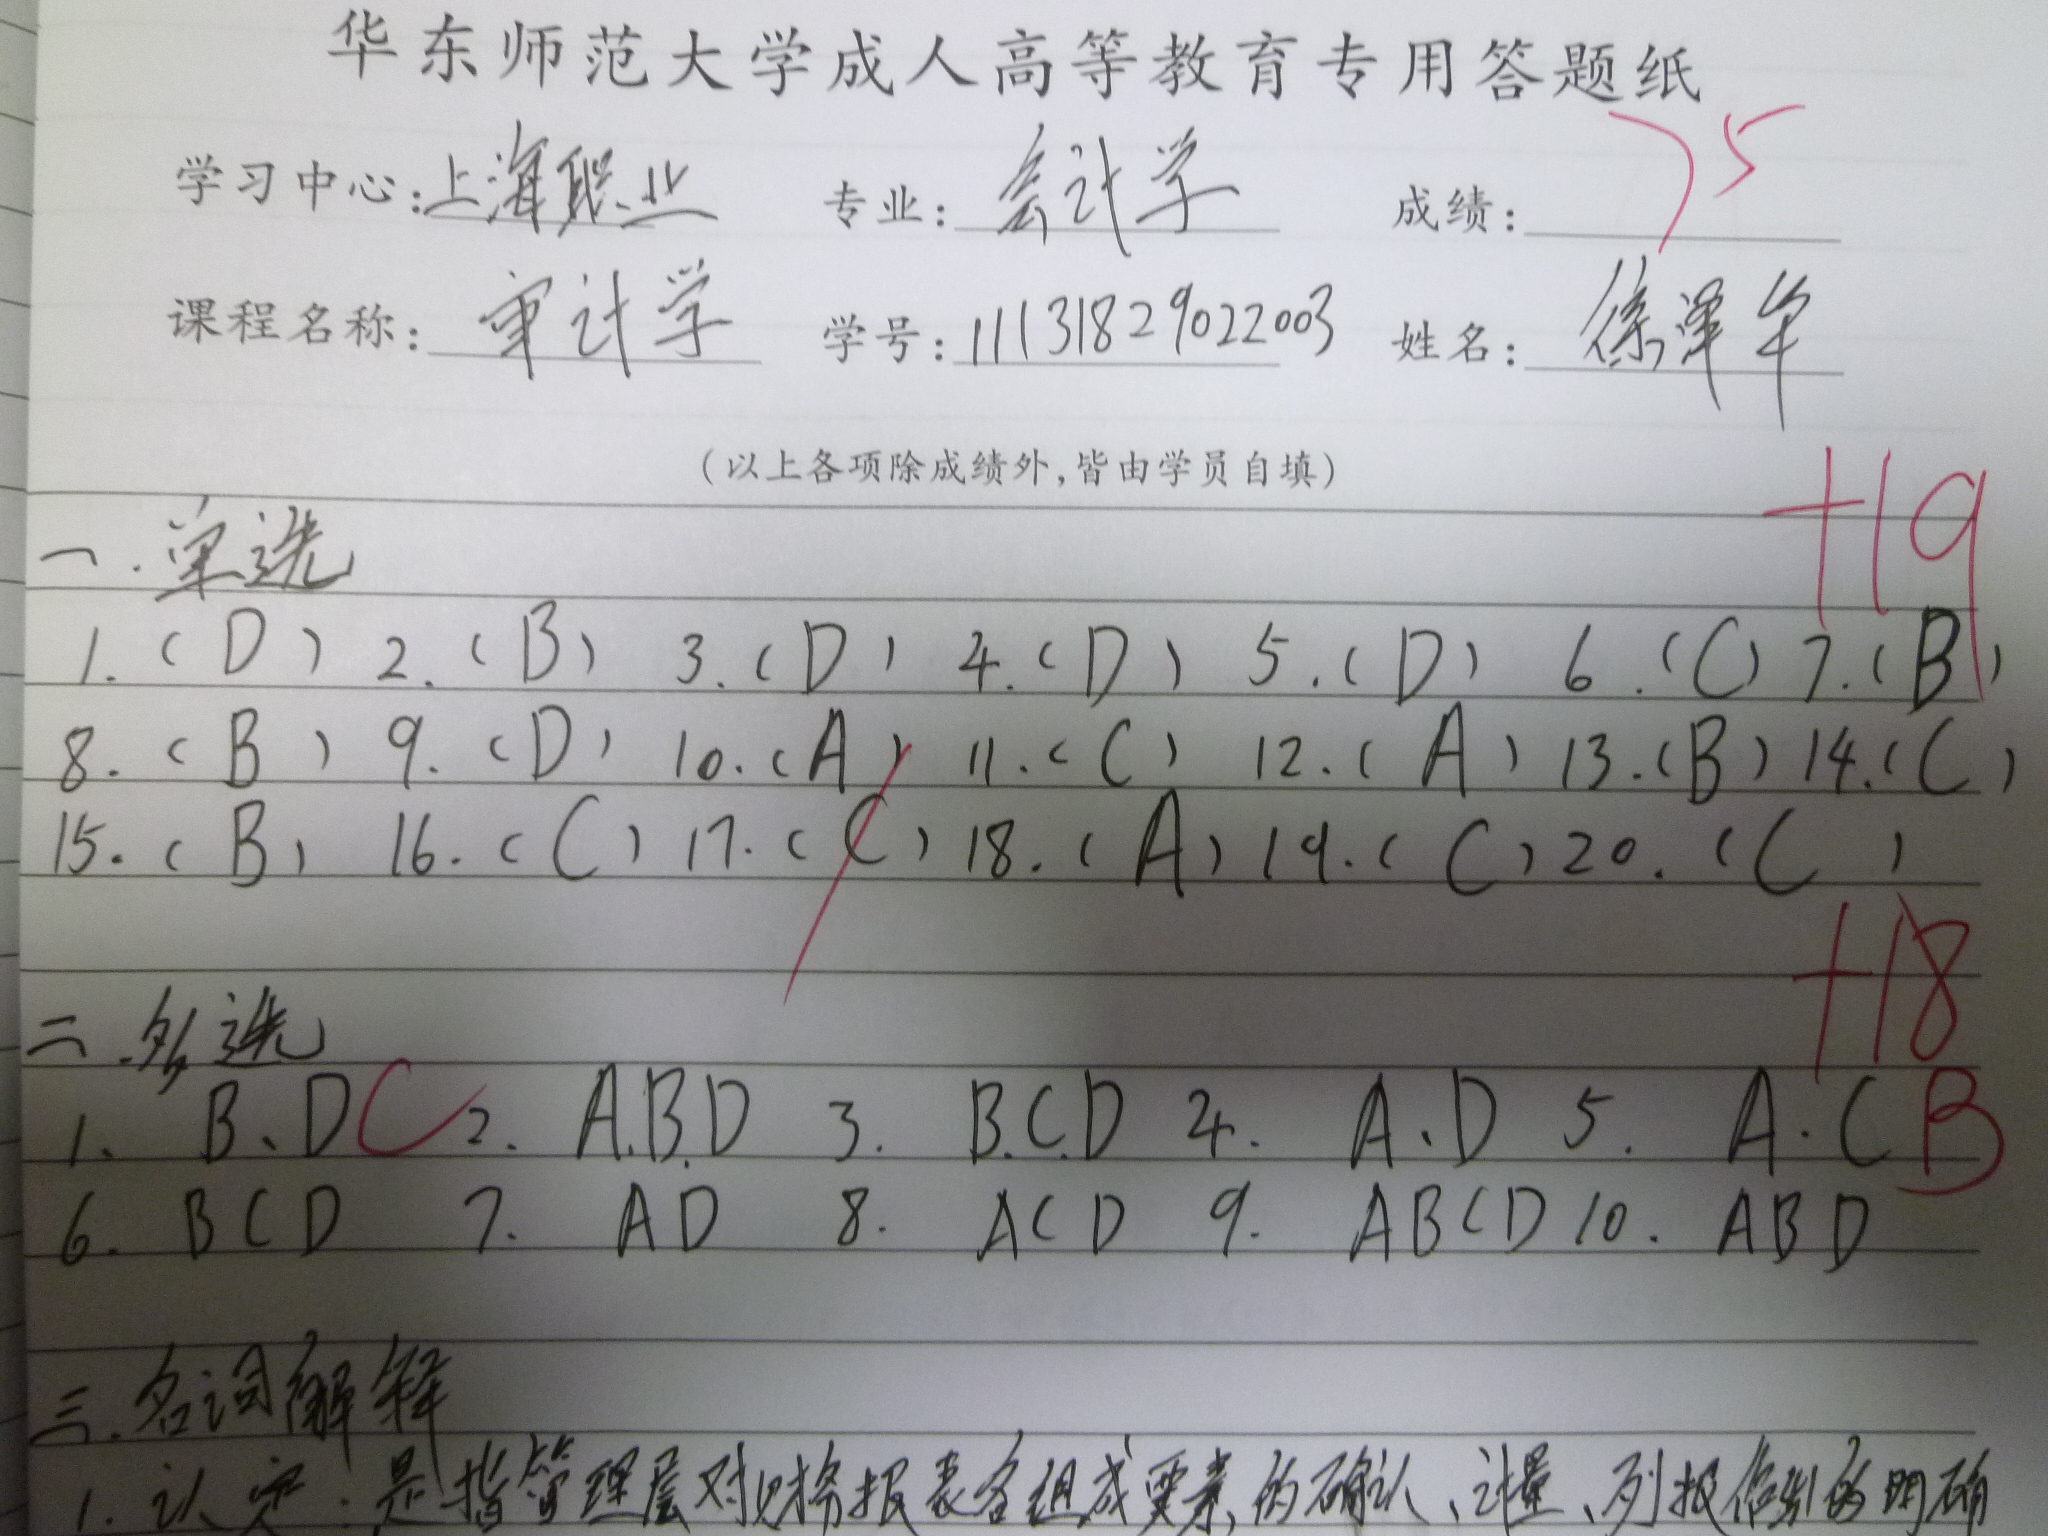 华东师范大学成人高等教育专用答题纸
学习中心:上海职业 专业:会计学 成绩:75
课程名称:审计学 学号:11131829022003 姓名:徐泽华
(以上各项除成绩外,皆由学员自填)
+19
一.单选
1.(D) 2.(B) 3.(D) 4.(D) 5.(D) 6.(C) 7.(B)
8.(B) 9.(D) 10.(A) 11.(C) 12.(A) 13.(B) 14.(C)
15.(B) 16.(C) 17.(C) 18.(A) 19.(C) 20.(C)
+18
二.多选
1、B、D C 2. A.B.D 3. B.C.D 4. A、D 5. A.C B
6. BCD 7. AD 8. ACD 9. ABCD 10. ABD
三.名词解释
1.认定:是指管理层对财务报表各组成要素的确认、计量、列报作出的明确